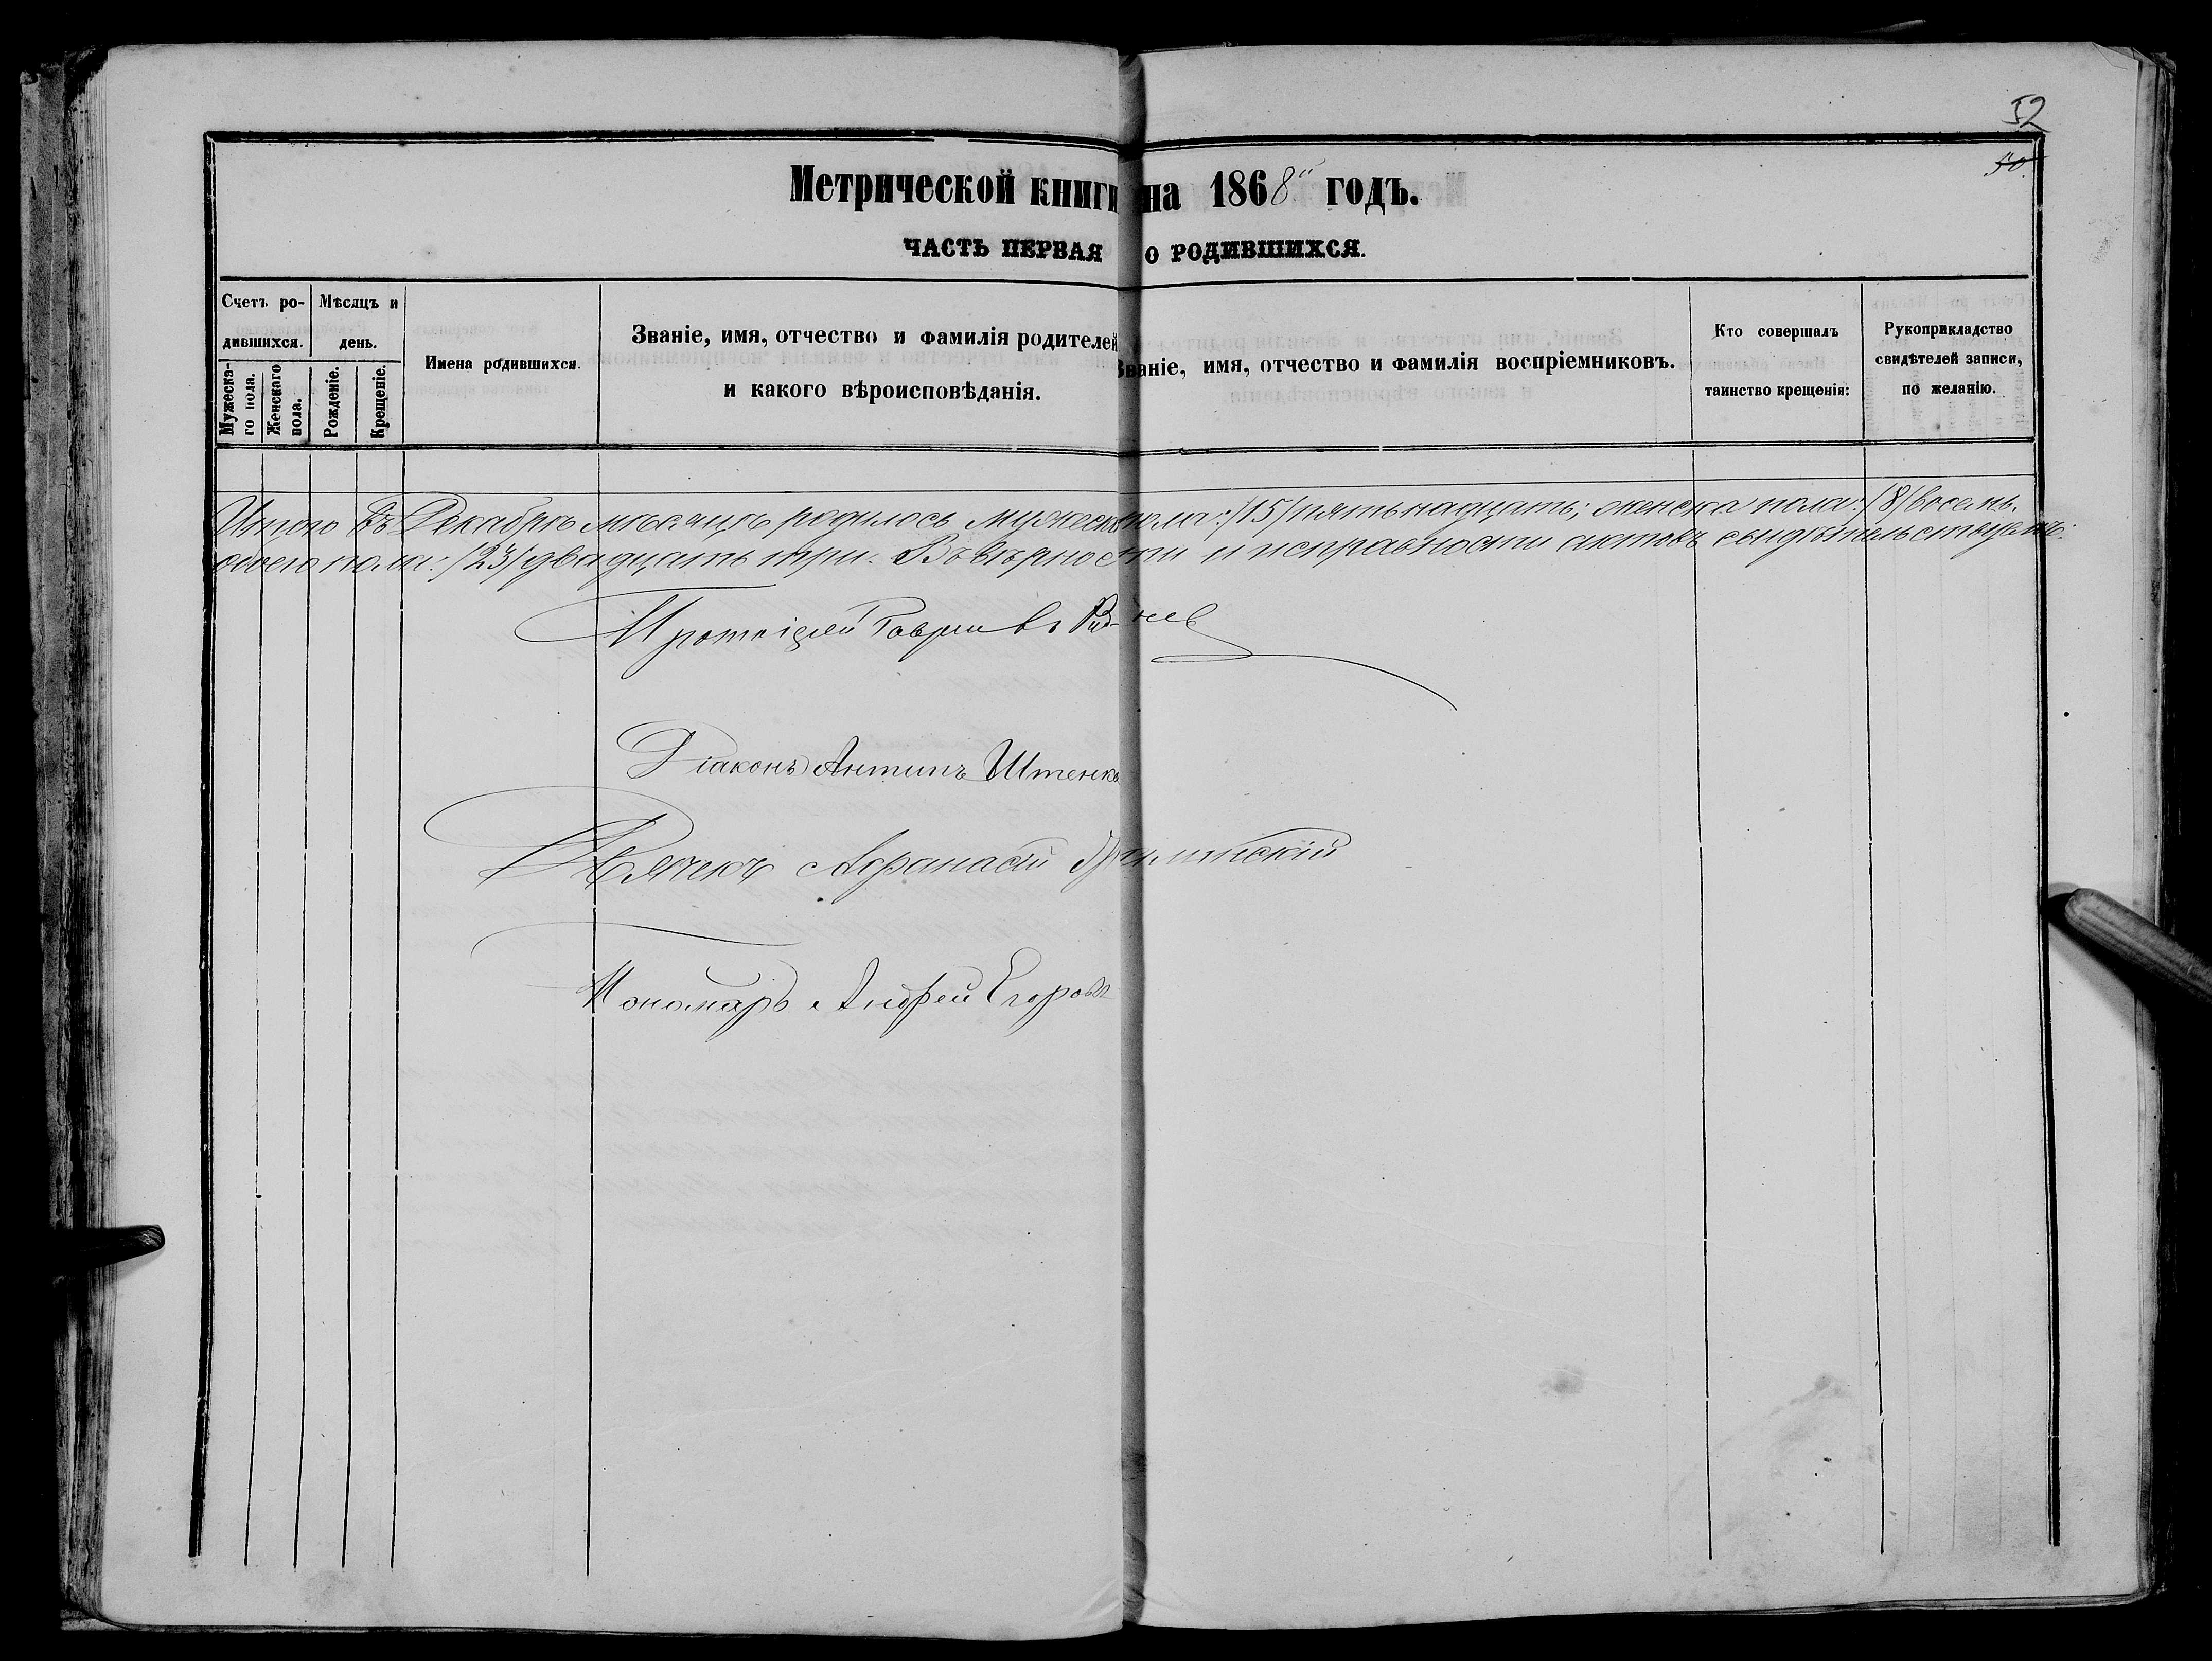 52
50.
Метрической книги на 1868 годъ.
ЧАСТЬ ПЕРВАЯ О РОДИВШИХСЯ.
Счетъ ро-
дившихся.
Мужеска-
го пола.
Женскаго
пола.
Мѣсяцъ и
день.
Рожденіе.
Крещеніе.
Имена родившихся.
Званіе, имя, отчество и фамилія родителей
и какого вѣроисповѣданія.
Званіе, имя, отчество и фамилія воспріемниковъ.
Кто совершалъ
таинство крещенія:
Рукоприкладство
свидѣтелей записи,
по желанію.
Итого въ Декабрѣ мѣсяцѣ родилось мужеска пола: /15/ пятьнадцать; женска пола: /8/ восемь.
обоего пола: /23/ двадцать три. Въ вѣрности и исправности актовъ свидѣтельствуемъ:
Протоіерей Гавріилъ
Діаконъ Антипъ Штенко
Дьячекъ Афанасій
Пономарь Андрей Егоровъ